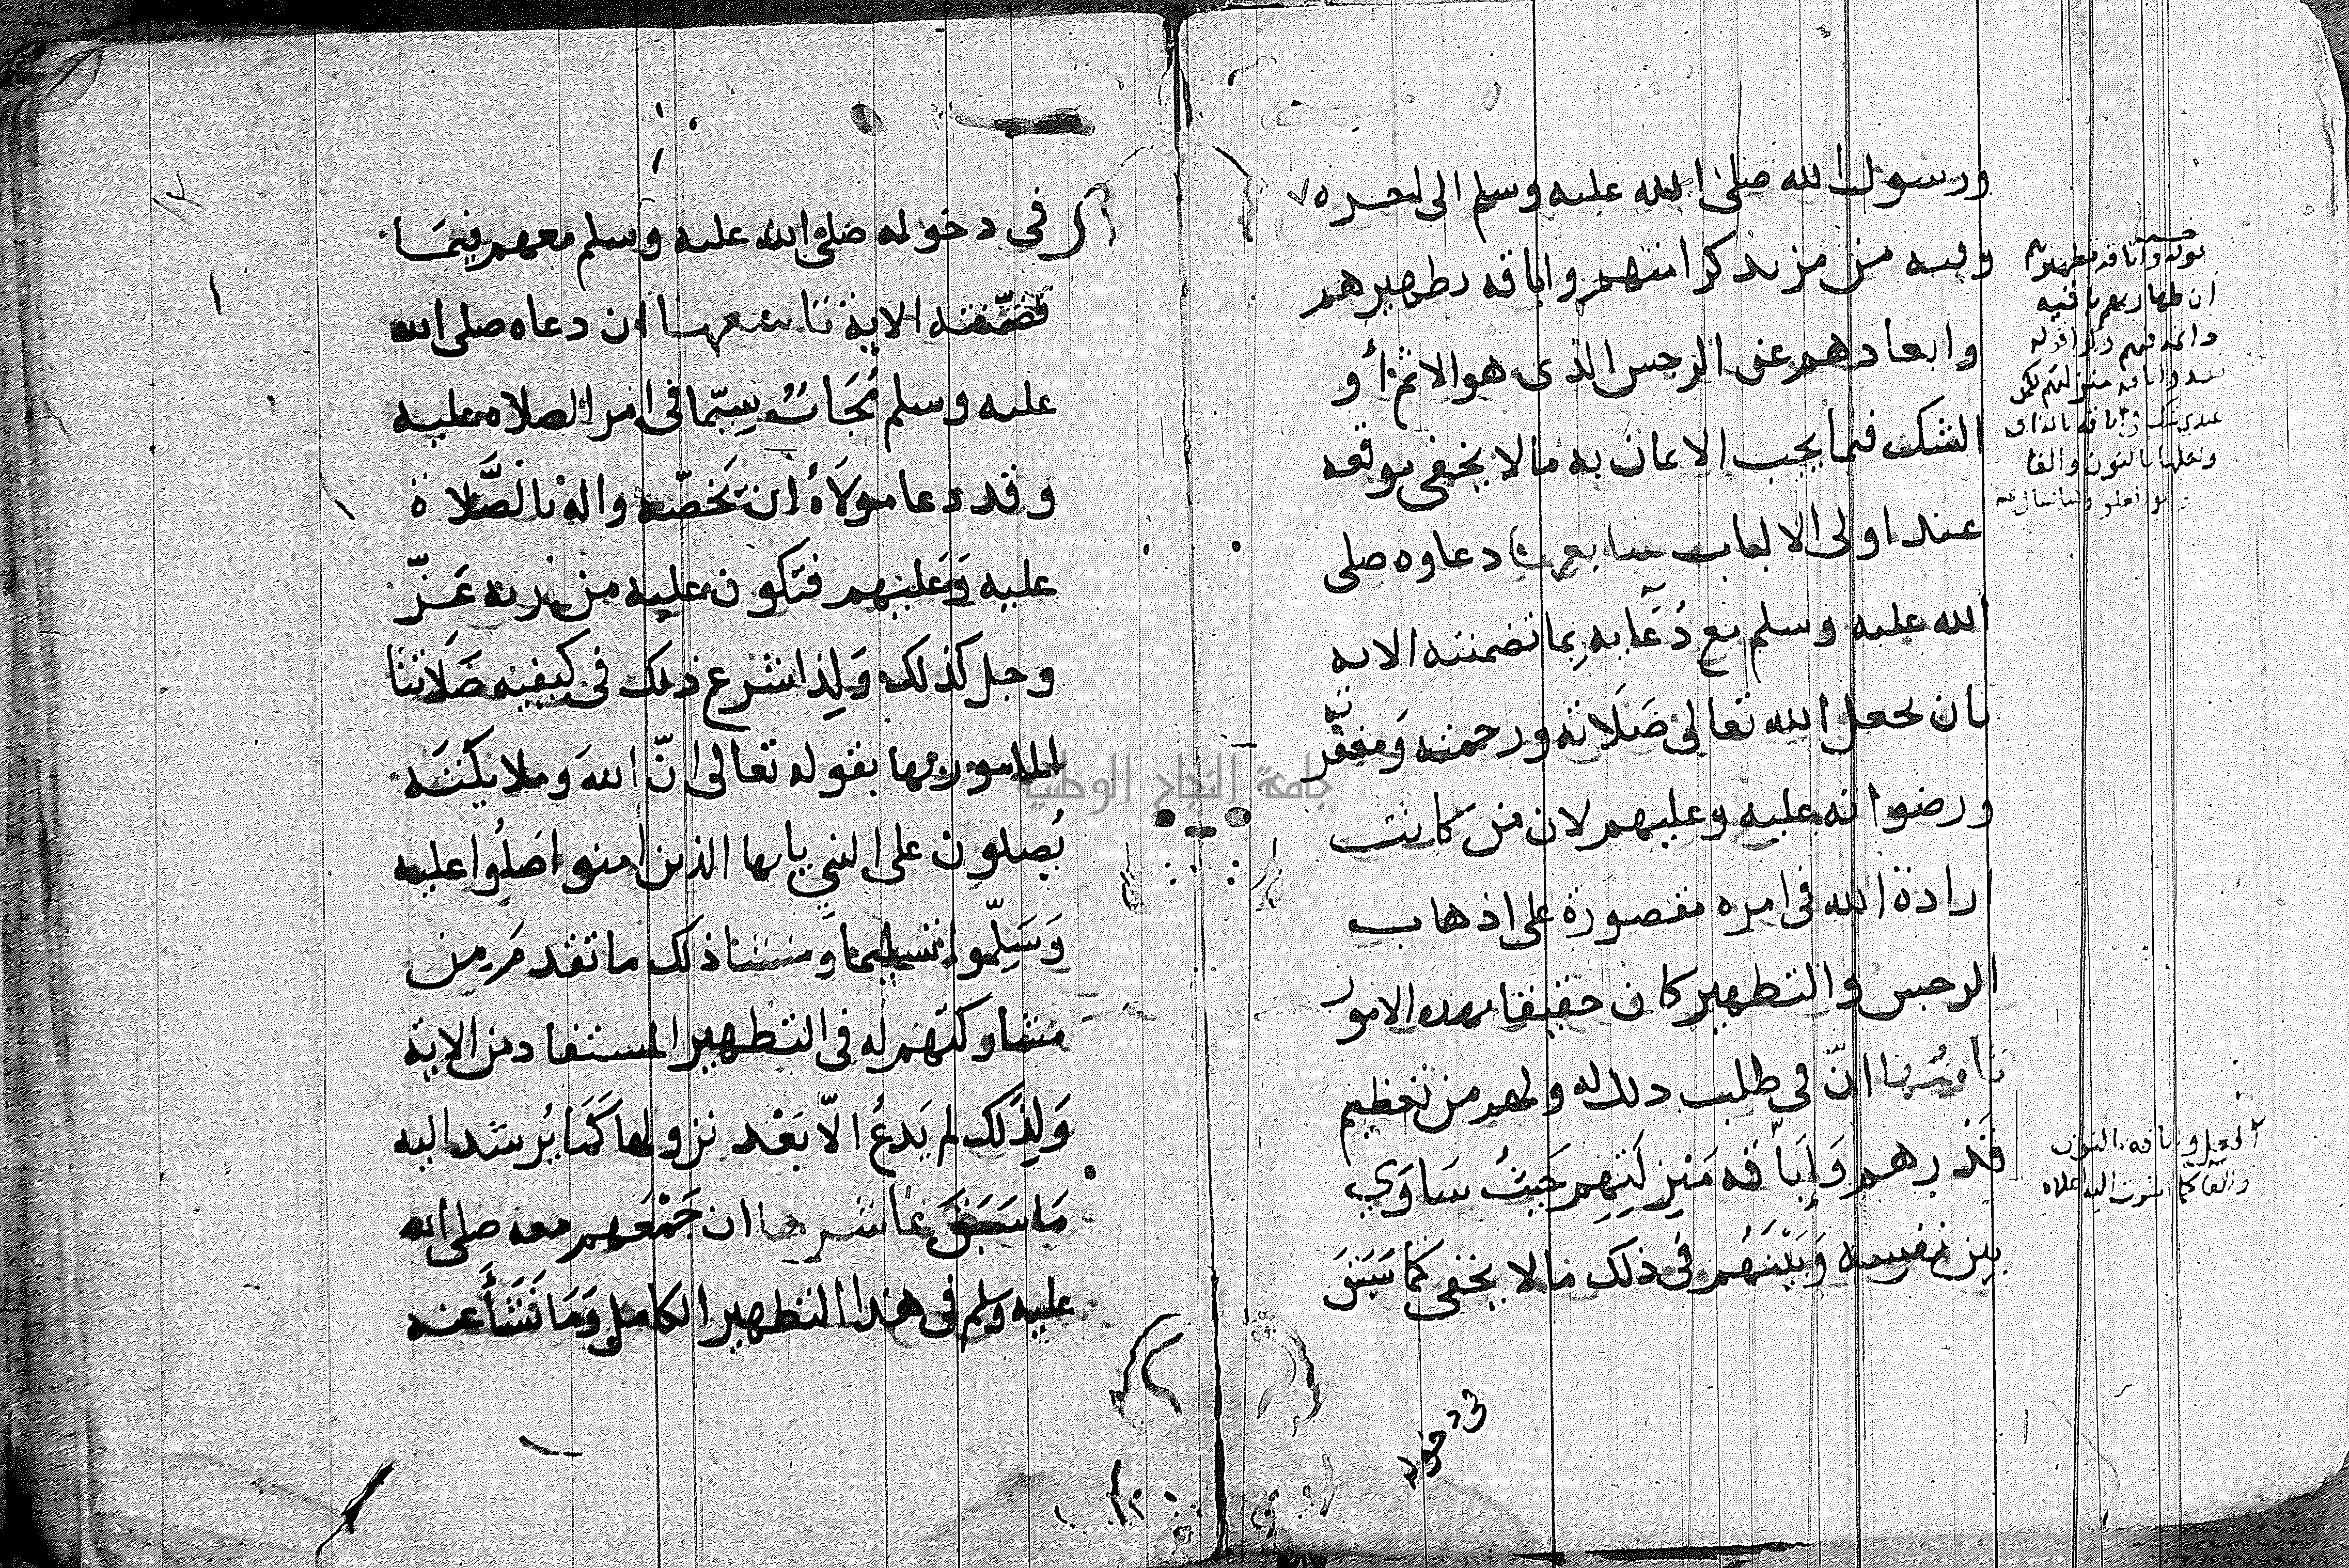 ورسول الله صلى الله عليه وسلم الى اخره
وفيه من مزيد كرامتهم وانافة تطهيرهم
وابعادهم عن الرجس الذى هو الاثم أو
الشك فيما يجب الايمان به مالا يخفى موقعه
عند اولى الالباب سابعها دعاوه صلى
الله عليه وسلم مع دُعَآيه بما تضمنته الايه
بان يجعل الله تعالى صَلَاته ورحمته وَمغفر
ته
ورضوانه عليه وعليهم لان من كانت
ارادة الله فى امره مقصورة على اذهاب
الرجس والتطهير كان حقيقا بهذه الامور
ثامنُها انّ فى طلب ذلك له ولهم من تعظيم
قَدرهم وَإنَافه مَنزلَتِهم حَيثُ سَاوَي
بين نفسه وَبَيْنَهُم فى ذلك مالا يخفى كما سَبَقَ
فى دخوله
قوله وانافة تطهيرهم
ان طهارتهم
بالنون والفا
وانافه بالنون
والفا كما اشرت اليه اعلاه
جامعة النجاح الوطنية
١٢
فى دخوله صلى الله عليه وسلم معهم فيمَا
تضمّنته الاية تاسعها ان دعاه صلى الله
عليه وسلم مُجَابٌ سِيّما فى امر الصلاه عليه
وقد دعا مولَاهُ ان يَخصّه واله بالصَّلاة
عليه وَعَليهم فتكون عليه من ربه عَزّ
وجل كذلك وَلِذا شرع ذلك فى كيفيه صَلَاتنا
المامور بها بقوله تعالى انّ اللهَ وملايكتَه
يُصلون على النبي يايها الذين امنوا صَلُوا عليه
وَسَلِّموا تسليمًا ومنشا ذلك ما تقدم مِن
مشاركتهم له فى التطهير المستفاد من الاية
وَلِذَلك لم يَدعُ الاّ بَعْد نزولها كَمَا يُرشد اليه
مَا سَبَقَ عاشرها ان جَمْعَهم معه صلى الله
عليه وسلم فى هذا التطهير الكامل وَمَا نَشَأ عنه